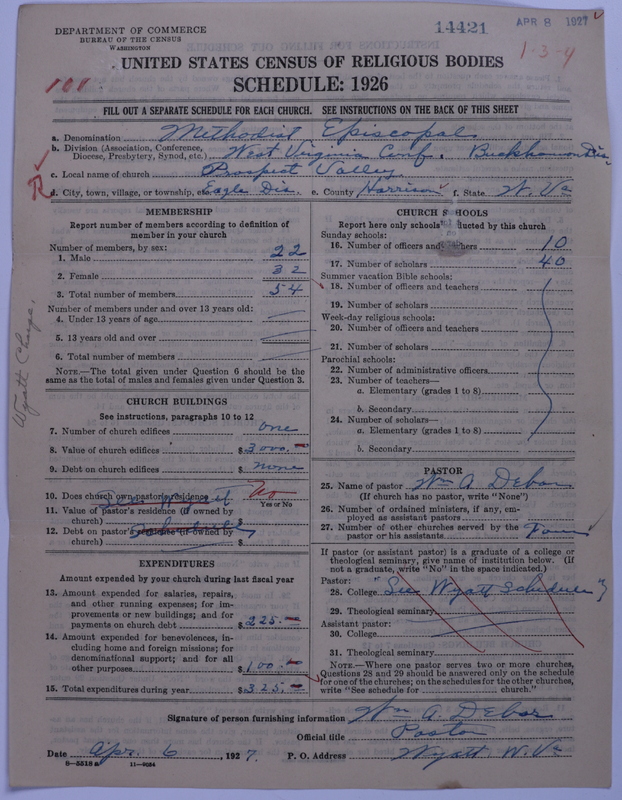 14421 APR 8 1927
DEPARTMENT OF COMMERCE
BUREAU OF THE CENSUS
WASHINGTON
1-3-4
UNITED STATES CENSUS OF RELIGIOUS BODIES
101
SCHEDULE: 1926
FILL OUT A SEPARATE SCHEDULE FOR EACH CHURCH. SEE INSTRUCTIONS ON THE BACK OF THIS SHEET
a. Denomination Methodist Episcopal
b. Division (Association, Conference,
Diocese, Presbytery, Synod, etc.) West Virginia Conf. Buckhannon Dis.
c. Local name of church Prospect Valley
d. City, town, village, or township, etc. Eagle Dis. e. County Harrison f. State W. Va
MEMBERSHIP
Report number of members according to definition of
member in your church
Number of members, by sex:
1. Male 22
2. Female 32
3. Total number of members 54
Number of members under and over 13 years old:
4. Under 13 years of age
5. 13 years old and over
6. Total number of members
NOTE.—The total given under Question 6 should be the
same as the total of males and females given under Question 3.
Wyatt Charge.
CHURCH BUILDINGS
See instructions, paragraphs 10 to 12
7. Number of church edifices one
8. Value of church edifices $3000.—
9. Debt on church edifices $ none
10. Does church own pastor's residence No
Yes or No
See Wyatt
11. Value of pastor's residence (if owned by
church) $
Schedule
12. Debt on pastor's residence (if owned by
church) $
EXPENDITURES
Amount expended by your church during last fiscal year
13. Amount expended for salaries, repairs,
and other running expenses; for im-
provements or new buildings; and for
payments on church debt $225.—
14. Amount expended for benevolences, in-
cluding home and foreign missions; for
denominational support; and for all
other purposes $100.—
15. Total expenditures during year $325.—
CHURCH SCHOOLS
Report here only schools conducted by this church
Sunday schools:
16. Number of officers and teachers 10
17. Number of scholars 40
Summer vacation Bible schools:
18. Number of officers and teachers
19. Number of scholars
Week-day religious schools:
20. Number of officers and teachers
21. Number of scholars
Parochial schools:
22. Number of administrative officers
23. Number of teachers—
a. Elementary (grades 1 to 8)
b. Secondary
24. Number of scholars—
a. Elementary (grades 1 to 8)
b. Secondary
PASTOR
25. Name of pastor Wm A. Debar
(If church has no pastor, write "None")
26. Number of ordained ministers, if any, em-
ployed as assistant pastors
27. Number of other churches served by the
pastor or his assistants Four
If pastor (or assistant pastor) is a graduate of a college or
theological seminary, give name of institution below. (If
not a graduate, write "No" in the space indicated.)
Pastor:
28. College "See Wyatt Schedule"
29. Theological seminary
Assistant pastor:
30. College
31. Theological seminary
NOTE.—Where one pastor serves two or more churches,
Questions 28 and 29 should be answered only on the schedule
for one of the churches; on the schedules for the other churches,
write "See schedule for church."
Signature of person furnishing information Wm A Debar
Official title Pastor
Date Apr. 6, 1927. P. O. Address Wyatt W. Va
8-5518 a 11-9054